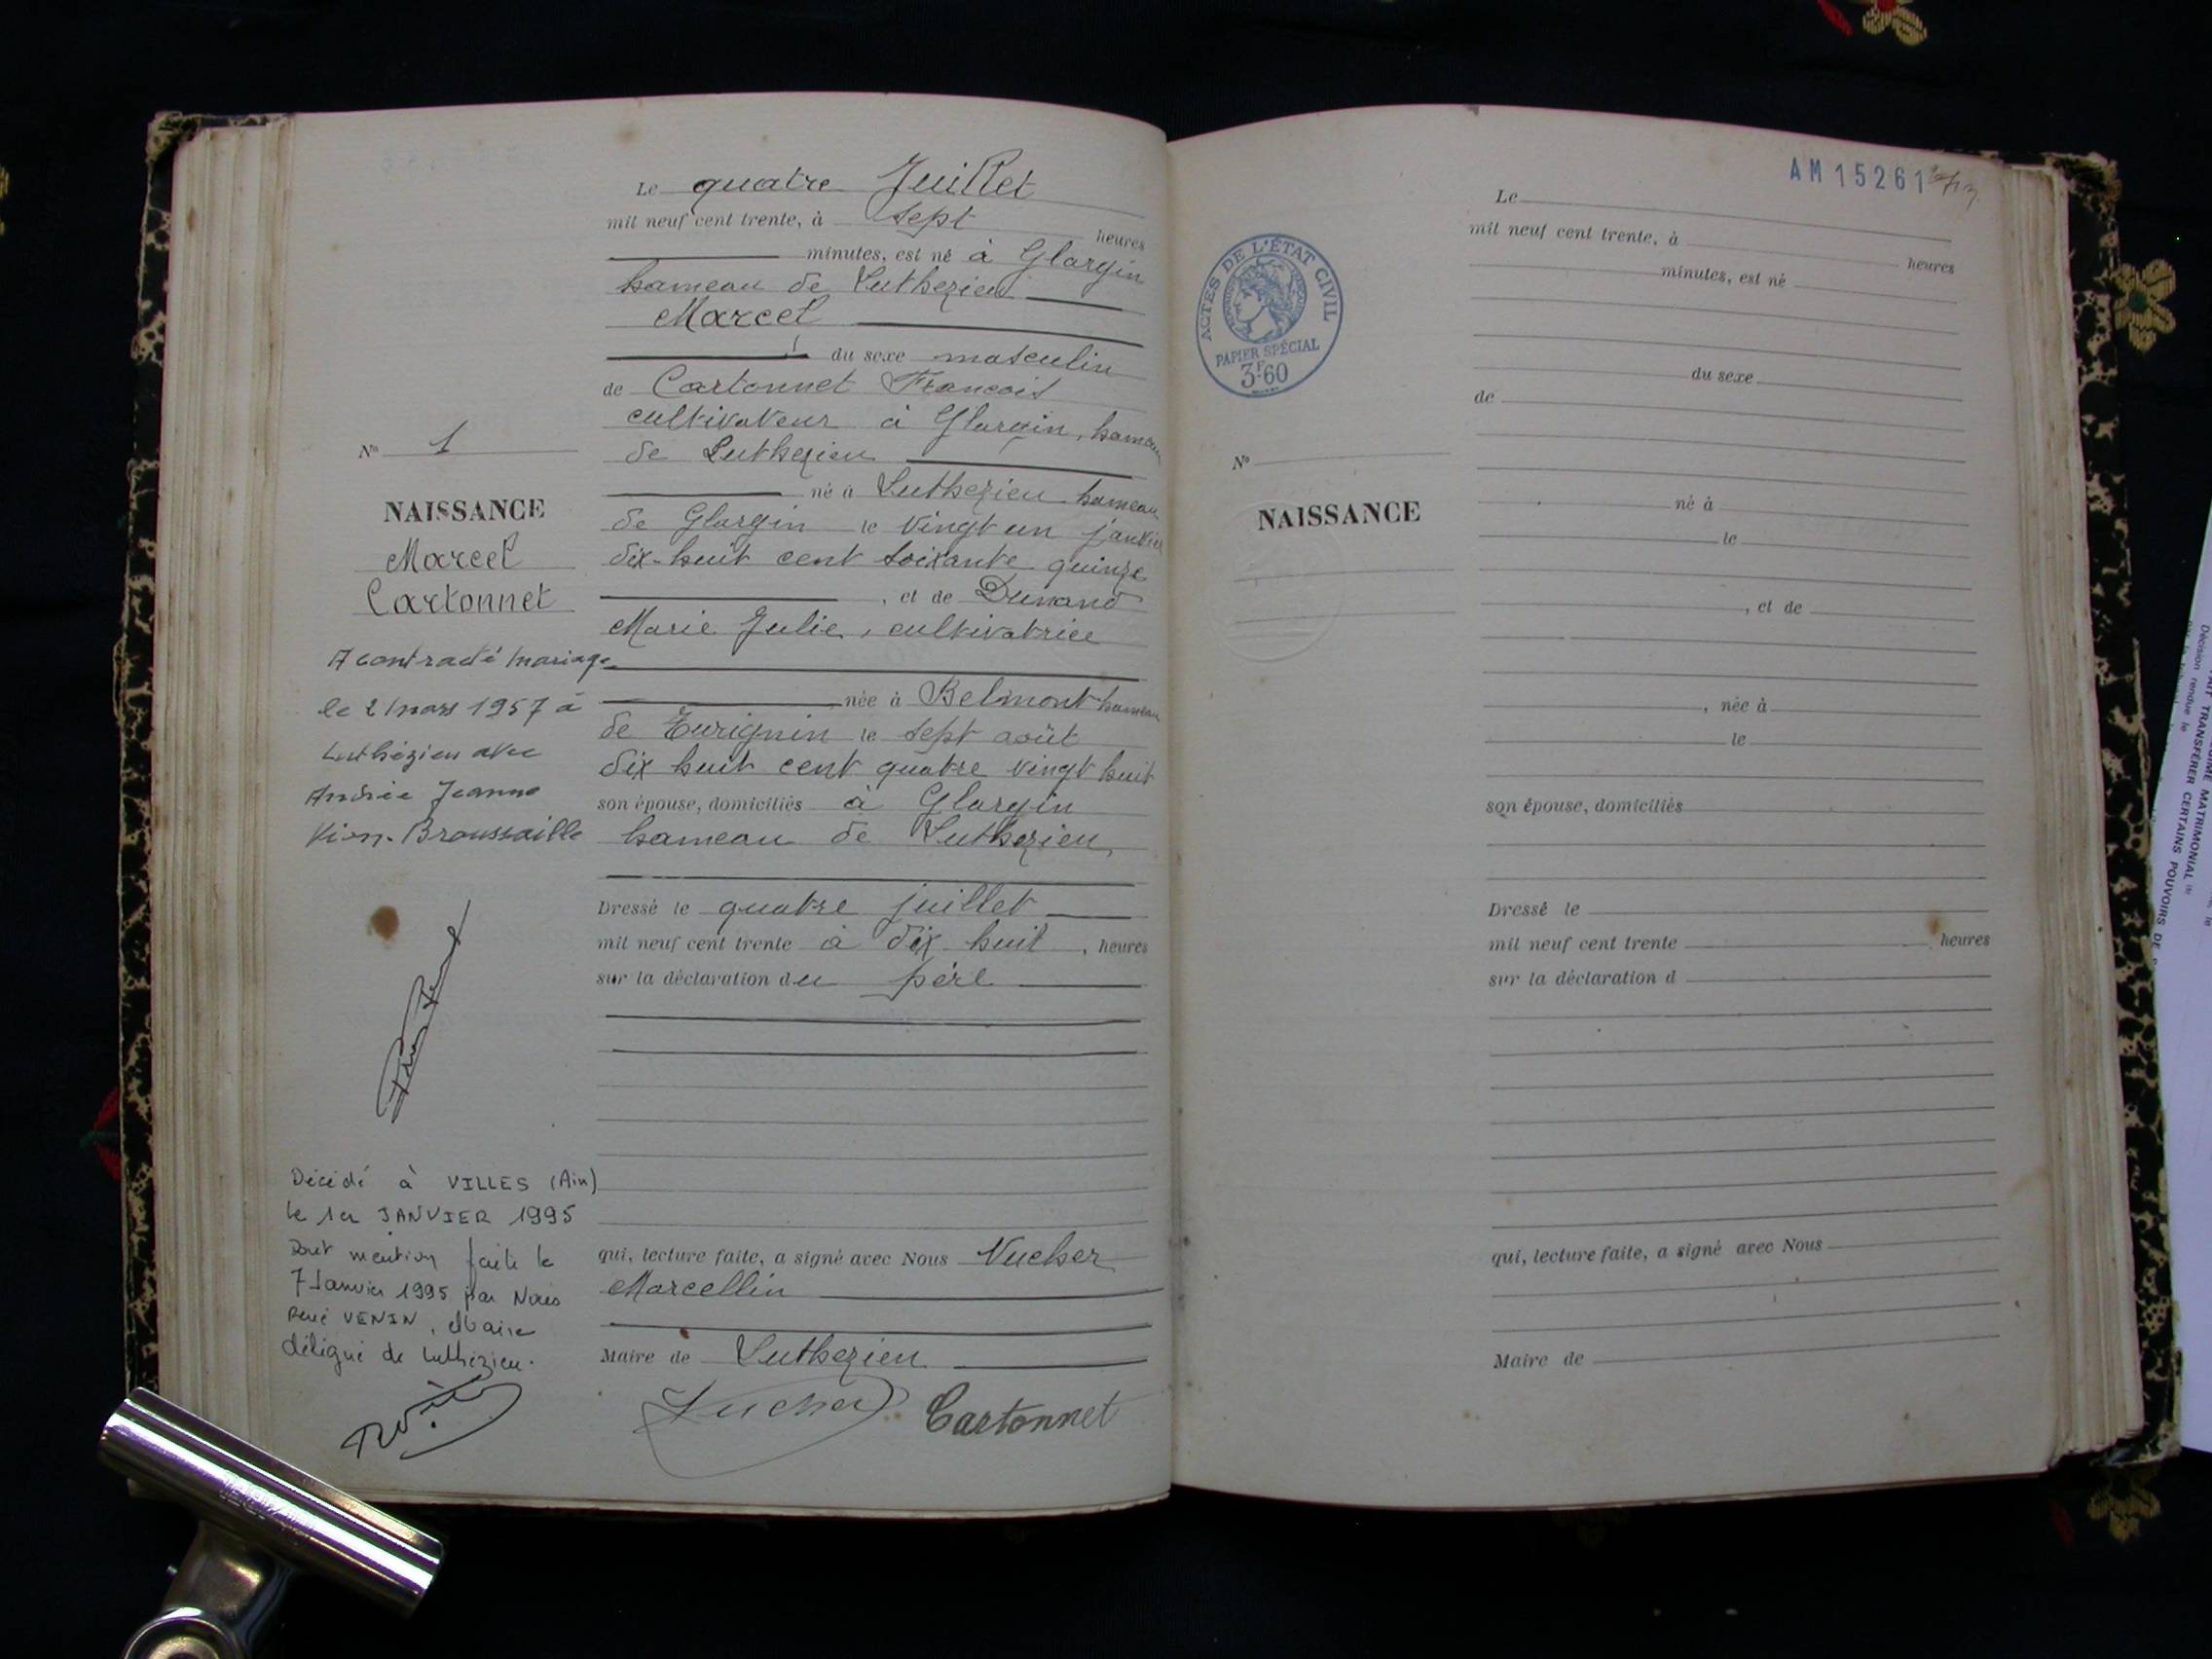 Le quatre Juillet
mil neuf cent trente, à sept heures
minutes, est né à Glargin
hameau de Luthezieu
Marcel
du sexe masculin
de Cartonnet François
cultivateur à Glargin, hameau
de Luthezieu
né à Luthezieu hameau
de Glargin le vingt un janvier
dix-huit cent soixante quinze
, et de Dunand
Marie Julie, cultivatrice
née à Belmont hameau
de Zurignin le sept août
dix huit cent quatre vingt huit
son épouse, domiciliés à Glargin
hameau de Luthezieu,
Dressé le quatre juillet
mil neuf cent trente à dix huit, heures
sur la déclaration du père
qui, lecture faite, a signé avec Nous Vucher
Marcellin
Maire de Luthezieu
Vucher Cartonnet
No 1
NAISSANCE
Marcel
Cartonnet
A contracté mariage
le 2 mars 1957 à
Luthézieu avec
Andrée Jeanne
Vion-Broussaille
Décédé à VILLES (Ain)
le 1er JANVIER 1995
Dont mention faite le
7 Janvier 1995 par Nous
René VENIN, Maire
délégué de Luthézieu.
AM 15261
ACTES DE L'ÉTAT CIVIL
PAPIER SPÉCIAL
3F60
No
NAISSANCE
Le
mil neuf cent trente, à
heures
minutes, est né
du sexe
de
né à
le
, et de
, née à
le
son épouse, domiciliés
Dressé le
mil neuf cent trente , heures
sur la déclaration d
qui, lecture faite, a signé avec Nous
Maire de
MATRIMONIAL
TRANSFÉRER CERTAINS POUVOIRS DE
Décision rendue le